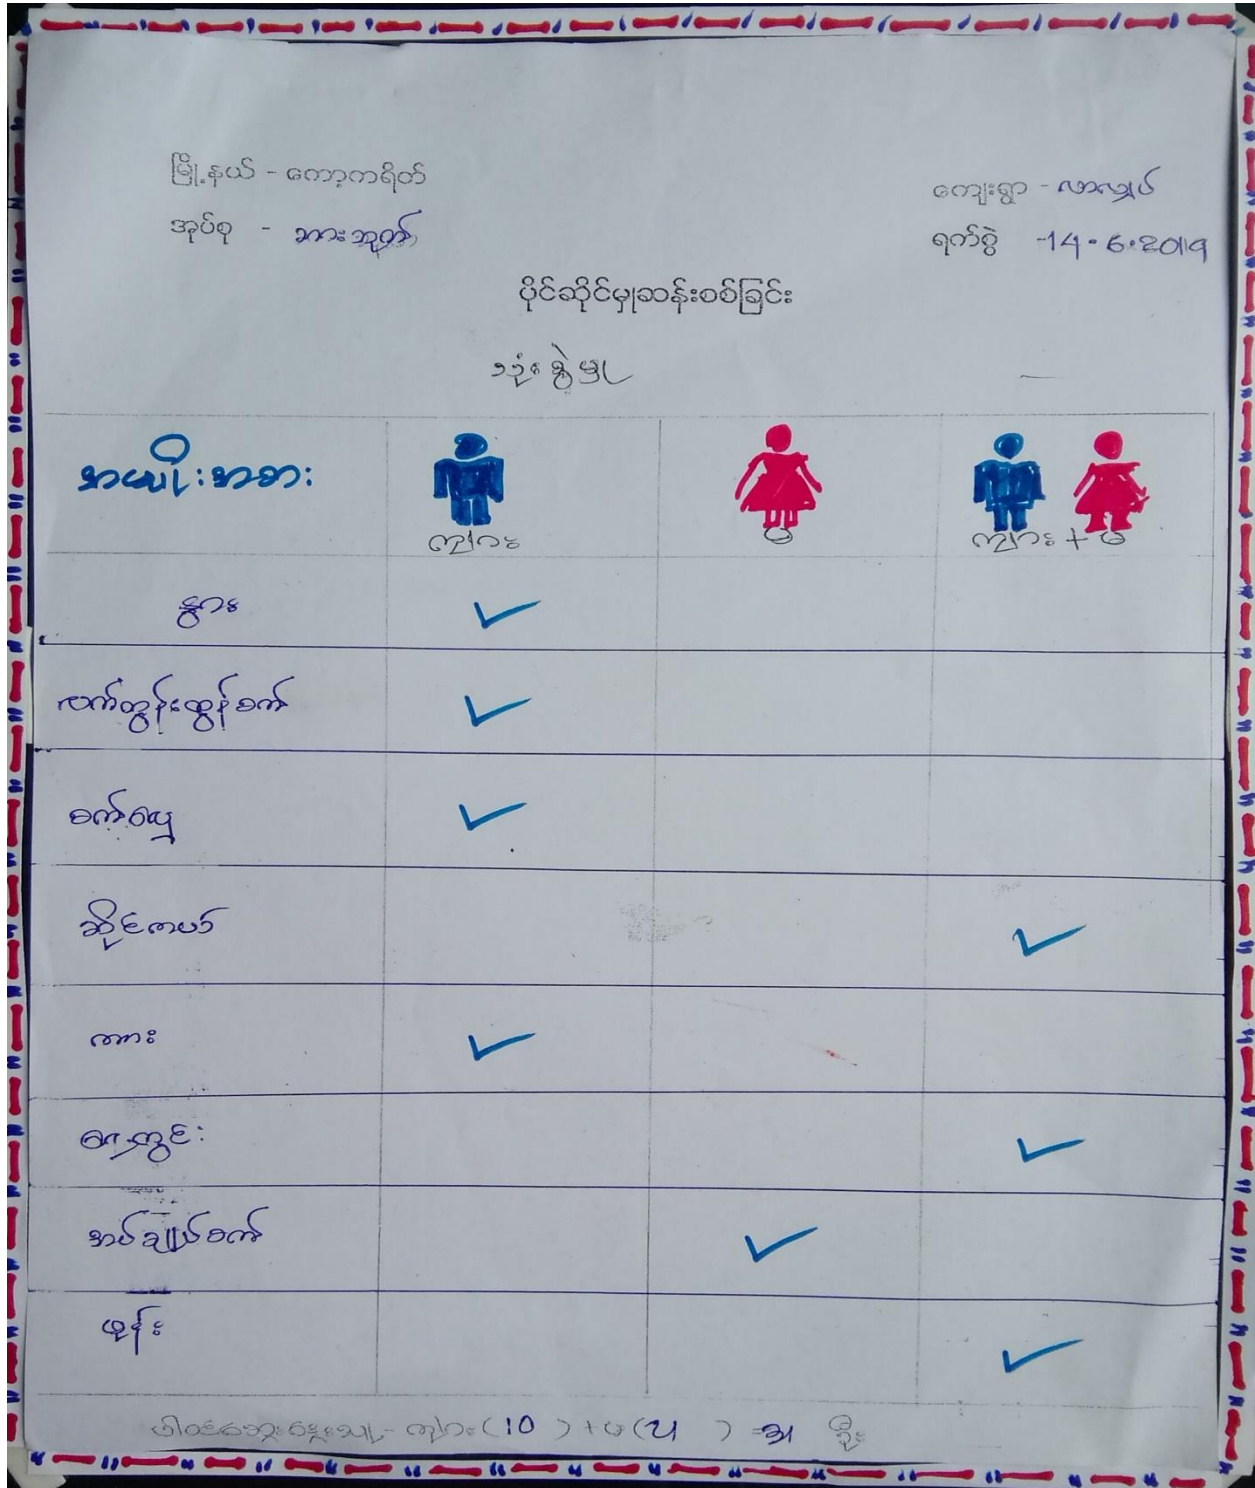 မြို့နယ် - ကော့ကရိတ်
ကျေးရွာ - လာလျှပ်
အုပ်စု -
ရက်စွဲ -14.6.2019
ပိုင်ဆိုင်မှုဆန်းစစ်ခြင်း
သုံးစွဲမှု
အမျိုးအစား
ကျား မ ကျား + မ
နွား
လက်တွန်းထွန်စက်
စက်လှေ
ဆိုင်ကယ်
ကား
ရေတွင်း
အပ်ချုပ်စက်
ဖုန်း
ပါဝင်ဆွေးနွေးသူ - ကျား (10) + မ (21) = 31 ဦး